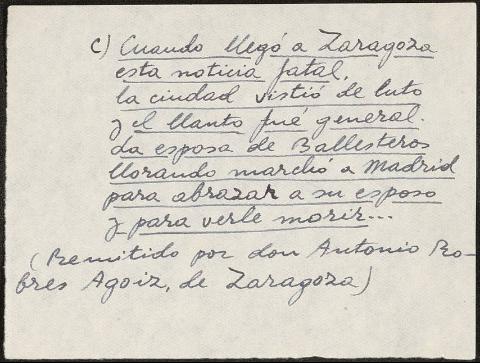 c) Cuando llegó a Zaragoza
esta noticia fatal,
la ciudad vistió de luto
y el llanto fué general.
La esposa de Ballesteros
llorando marchó a Madrid
para abrazar a su esposo
y para verle morir...
(Remitido por don Antonio Ro-
bres Agoiz, de Zaragoza)